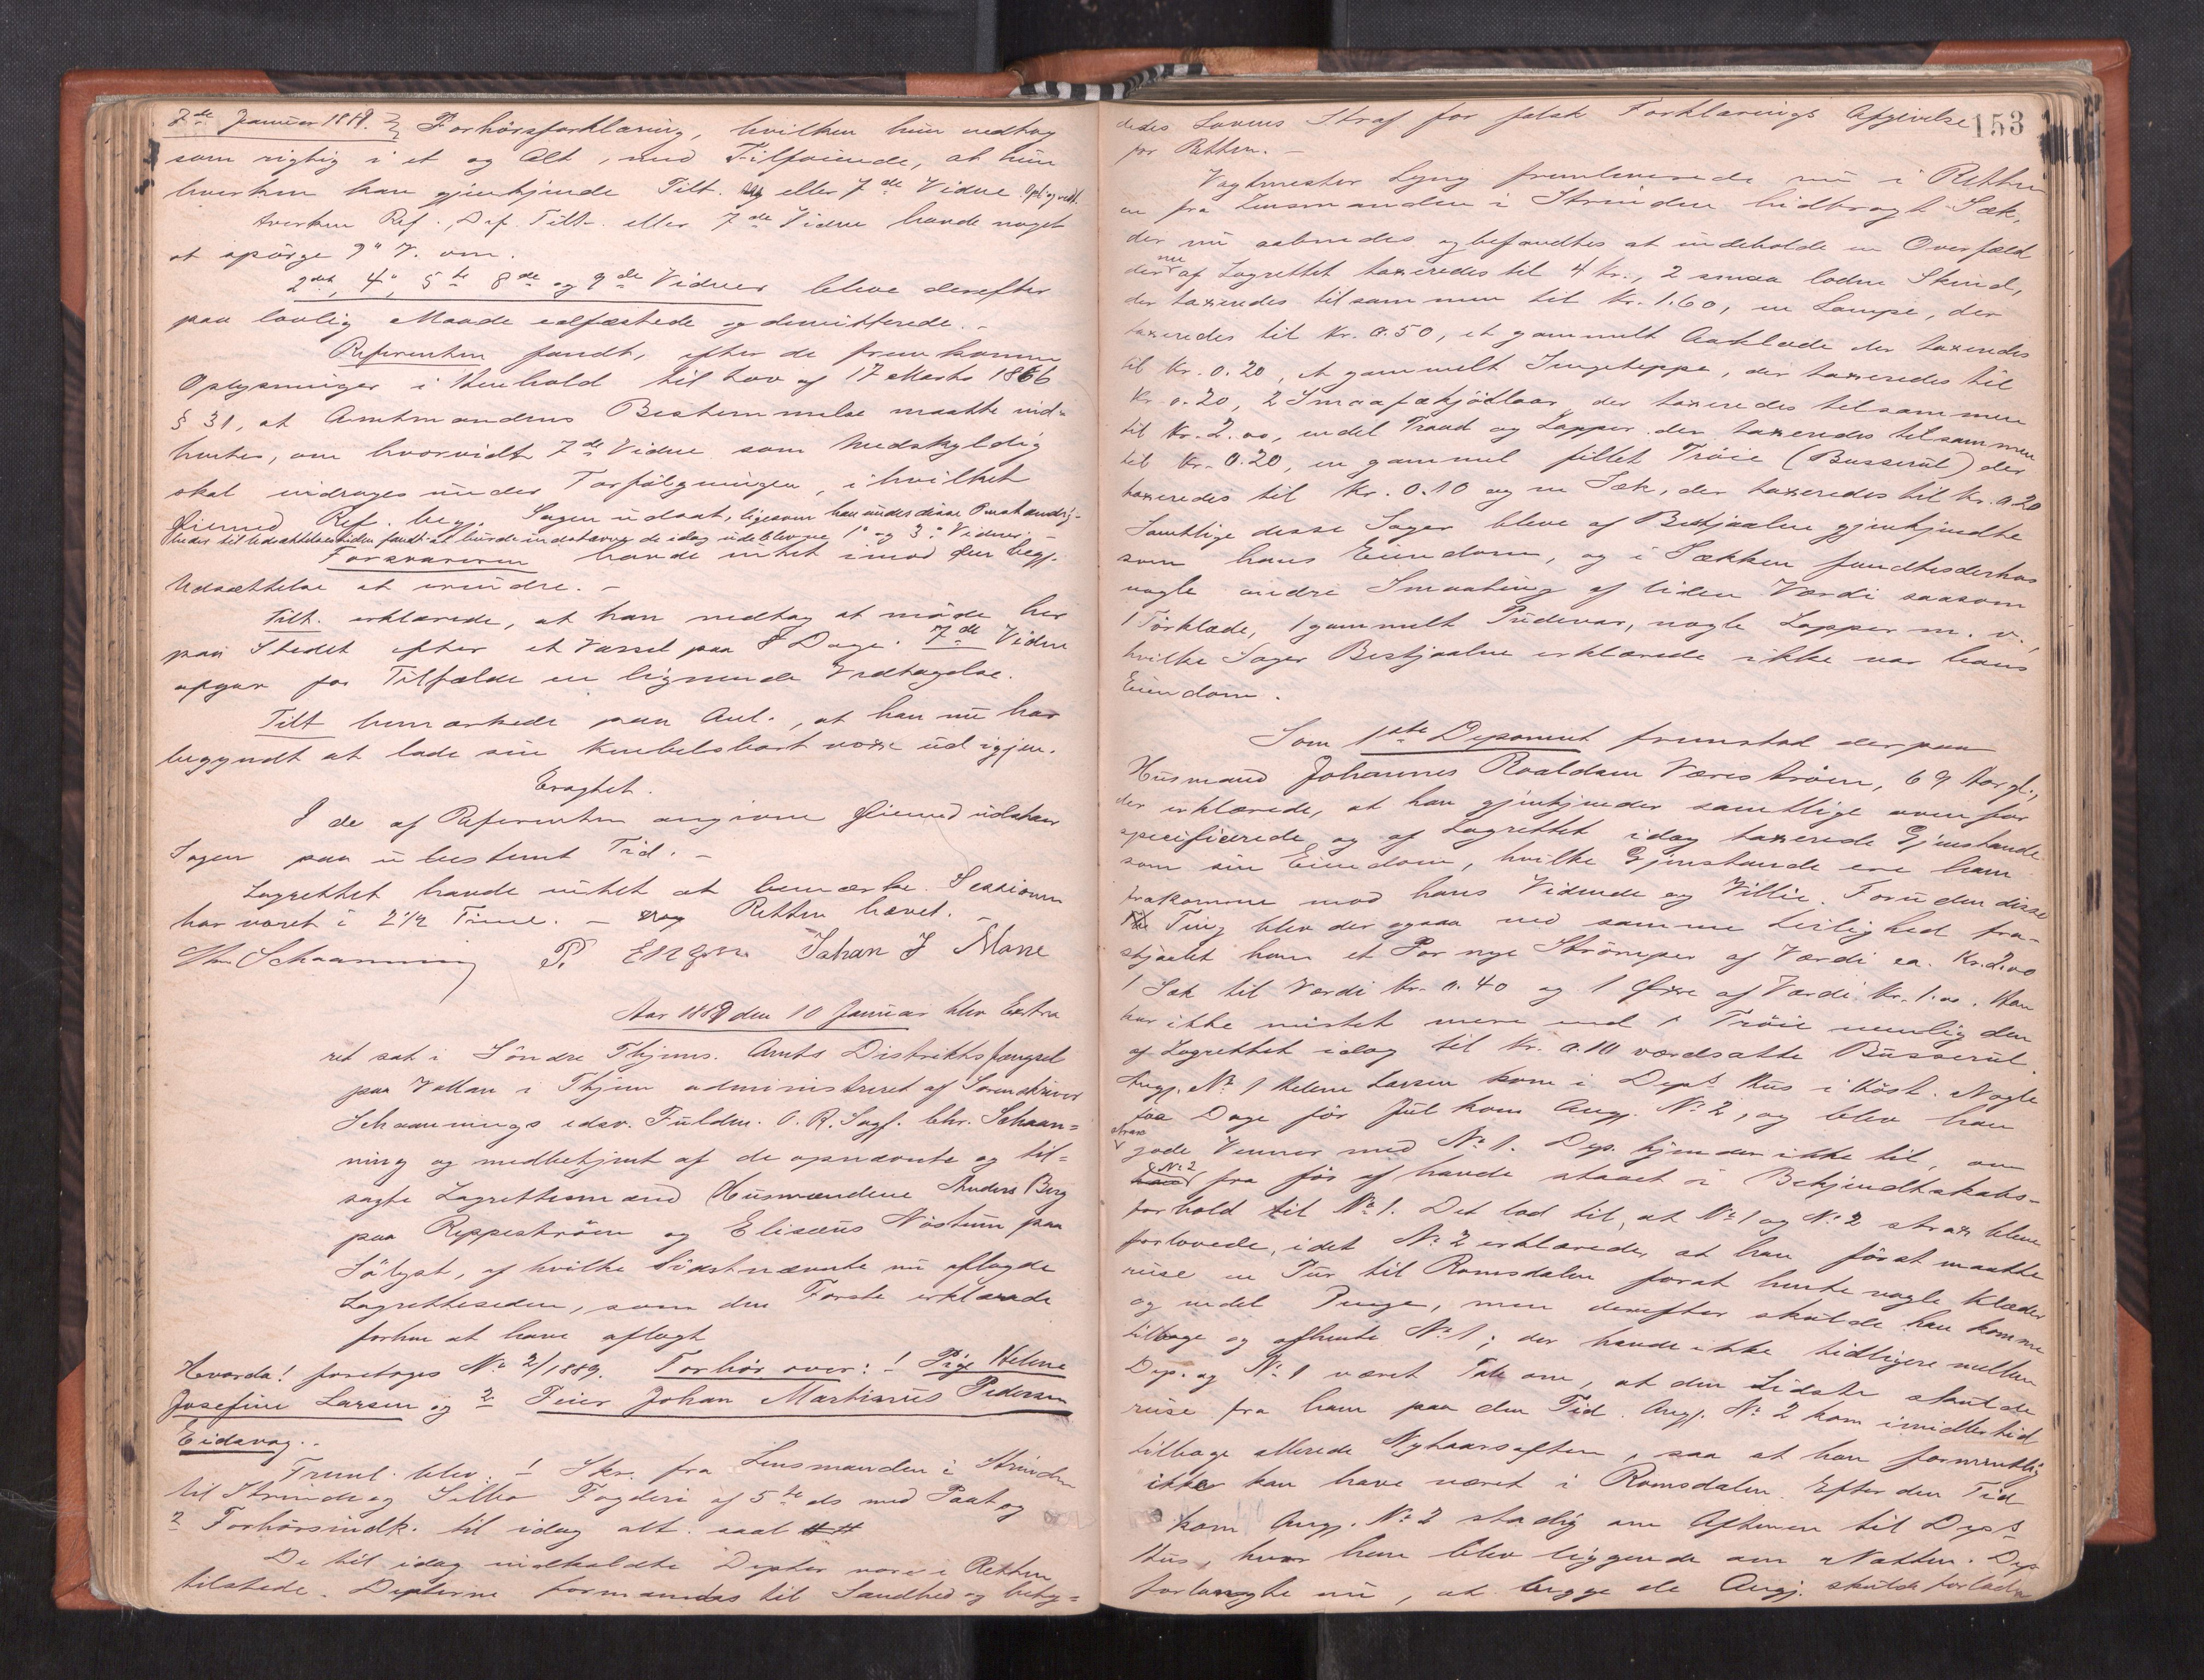 7de Januar 1889. Forhørsforklaring, hvilken hun vedtog
som rigtig i et og Alt, med Tilføiende, at hun
hverken kan gjenkjende Tilt. eller 7de Vidne. Opl. og vedt.
Hverken Ref., Def. Tilt. eller 7de Vidne havde noget
at spørge 9" V. om.
2det, 4", 5te 8de og 9de Vidner bleve derefter
paa lovlig Maade edfæstede og demitterede. -
Referenten fandt, efter de fremkomne
Oplysninger i Henhold til Lov af 17 Marts 1866
§ 31, at Amtmandens Bestemmelse maatte ind-
hentes, om hvorvidt 7de Vidne som Medskyldig
skal inddrages under Forfølgningen, i hvilket
Øiemed Ref. beg. Sagen udsat, ligesom han under disse Omstændig-
heder til Udsættelsen fandt at burde indstævne de idag udeblevne 1" og 3" Vidner. -
Forsvareren havde intet imod den begj.
Udsættelse at erindre. -
Tilt. erklærede, at han vedtog at møde her
paa Stedet efter et Varsel paa 8 Dage. 7de Vidne
afgav for Tilfælde en lignende Vedtagelse.
Tilt bemærkede paa Anl., at han nu har
begyndt at lade sin Knebelsbart voxe ud igjen.
Eragtet.
I de af Referenten angivne Øiemed udsættes
Sagen paa ubestemt Tid. -
Lagrettet havde intet at bemærke. Sessionen
har varet i 2 1/2 Time. - Retten hævet. -
Schaanning P. Engen Johan J Moxe
Aar 1889 den 10 Januar blev Extra
ret sat i Søndre Thjems. Amts Distriktsfængsel
paa Vollan i Thjem administreret af Sorenskriver
Schaannings edsv. Fuldm. O. R. Sagf. Chr. Schaan-
ning og medbetjent af de opnævnte og til-
sagte Lagrettesmænd Husmændene Anders Berg
paa Reppestrøen og Elisæus Nøstum paa
Sølyst, af hvilke Sidstnævnte nu aflagde
Lagretteseden, som den Første erklærede
forhen at have aflagt
Hvorda! foretoges No 2/1889. Forhør over: 1 Pige Helene
Josefine Larsen og 2 Feier Johan Martinus Pedersen
Eidsvog.
Freml. blev: 1 Skr. fra Lensmanden i Strinden
til Strinde og Selbo Fogderi af 5te ds med Paat og
2 Forhørsindk. til idag alt. saal
De til idag indkaldte Depter vare i Retten
tilstede. Depterne formanedes til Sandhed og bety-
153
dedes Lovens Straf for falsk Forklarings Afgivelse
for Retten. -
Vagtmester Lyng fremleverede nu i Retten
en fra Lensmanden i Strinden hidbragt Sæk,
der nu aabnedes og befandtes at indeholde en Overfæld
der nu af Lagrettet taxeredes til 4 Kr., 2 smaa lodne Skind,
der taxeredes tilsammen til Kr. 1.60, en Lampe, der
taxeredes til Kr. 0.50, et gammelt Aaklæde der taxeredes
til Kr. 0.20, et gammelt Sengeteppe, der taxeredes til
Kr 0.20, 2 Smaafækjødlaar der taxeredes tilsammen
til Kr. 2.00, endel Traad og Lapper der taxeredes tilsammen
til Kr. 0.20, en gammel fillet Trøie (Busserul) der
taxeredes til Kr. 0.10 og en Sæk, der taxeredes til Kr. 0.20
Samtlige disse Sager bleve af Bestjaalne gjenkjendte
som hans Eiendom, og i Sækken fandtes derhos
nogle andre Smaating af liden Værdi saasom
1 Tørklæde, 1 gammelt Pudevar, nogle Lapper m. v.,
hvilke Sager Bestjaalne erklærede ikke var hans
Eiendom.
Som 1ste Deponent fremstod derpaa
Husmand Johannes Roaldsen Værestrøen, 69 Aar gl.,
der erklærede, at han gjenkjender samtlige ovenfor
specificerede og af Lagrettet idag taxerede Gjenstande
som sin Eiendom, hvilke Gjenstande ere ham
frakomne mod hans Vidende og Villie. Foruden disse
Ting blev der ogsaa ved samme Leilighed fra-
stjaalet ham et Par nye Strømper af Værdi ca. Kr. 2.00
1 Sæk til Værdi Kr. 0.40 og 1 Øxe af Værdi Kr. 1.00. Han
har ikke mistet mere end 1 Trøie nemlig den
af Lagrettet idag til Kr. 0.10 værdsatte Busserul.
Angj. No 1 Helene Larsen kom i Depts Hus i Høst. Nogle
faa Dage før Jul kom Angj. No 2, og blev han
strax gode Venner med No 1. Dep. kjender ikke til, om
No 2 fra før af havde staaet i Bekjendtskabs-
forhold til No 1. Det lod til, at No 1 og No 2 strax bleve
forlovede, idet No 2 erklærede, at han først maatte
reise en Tur til Romsdalen forat hente nogle Klæder
og endel Penge, men derefter skulde han komme
tilbage og afhente No 1; der havde ikke tidligere mellem
Dep. og No 1 været Tale om, at den Sidste skulde
reise fra ham paa den Tid. Angj. No 2 kom imidlertid
tilbage allerede Nytaarsaften, saa at han formentlig
ikke kan have været i Romsdalen. Efter den Tid
kom Angj. No 2 stadig om Aftenen til Depts
Hus, hvor han blev liggende om Natten. Dep
forlangte nu, at begge de Angj. skulde forlade